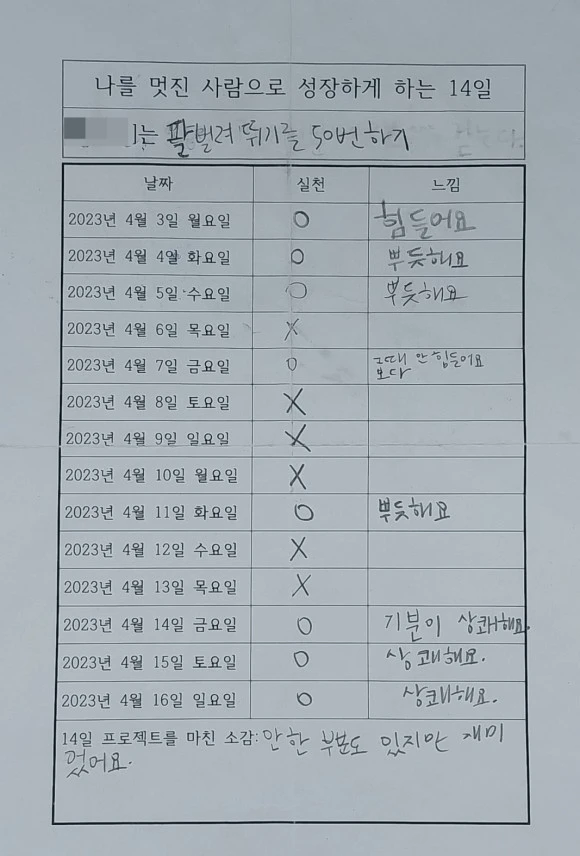 나를 멋진 사람으로 성장하게 하는 14일
는 팔벌려 뛰기를 50번하기
날짜 실천 느낌
2023년 4월 3일 월요일 O 힘들어요
2023년 4월 4일 화요일 O 뿌듯해요
2023년 4월 5일 수요일 O 뿌듯해요
2023년 4월 6일 목요일 X
2023년 4월 7일 금요일 O 그때보다 안 힘들어요
2023년 4월 8일 토요일 X
2023년 4월 9일 일요일 X
2023년 4월 10일 월요일 X
2023년 4월 11일 화요일 O 뿌듯해요
2023년 4월 12일 수요일 X
2023년 4월 13일 목요일 X
2023년 4월 14일 금요일 O 기분이 상쾌해요.
2023년 4월 15일 토요일 O 상쾌해요.
2023년 4월 16일 일요일 O 상쾌해요.
14일 프로젝트를 마친 소감: 안한 부분도 있지만 재미
있어요.